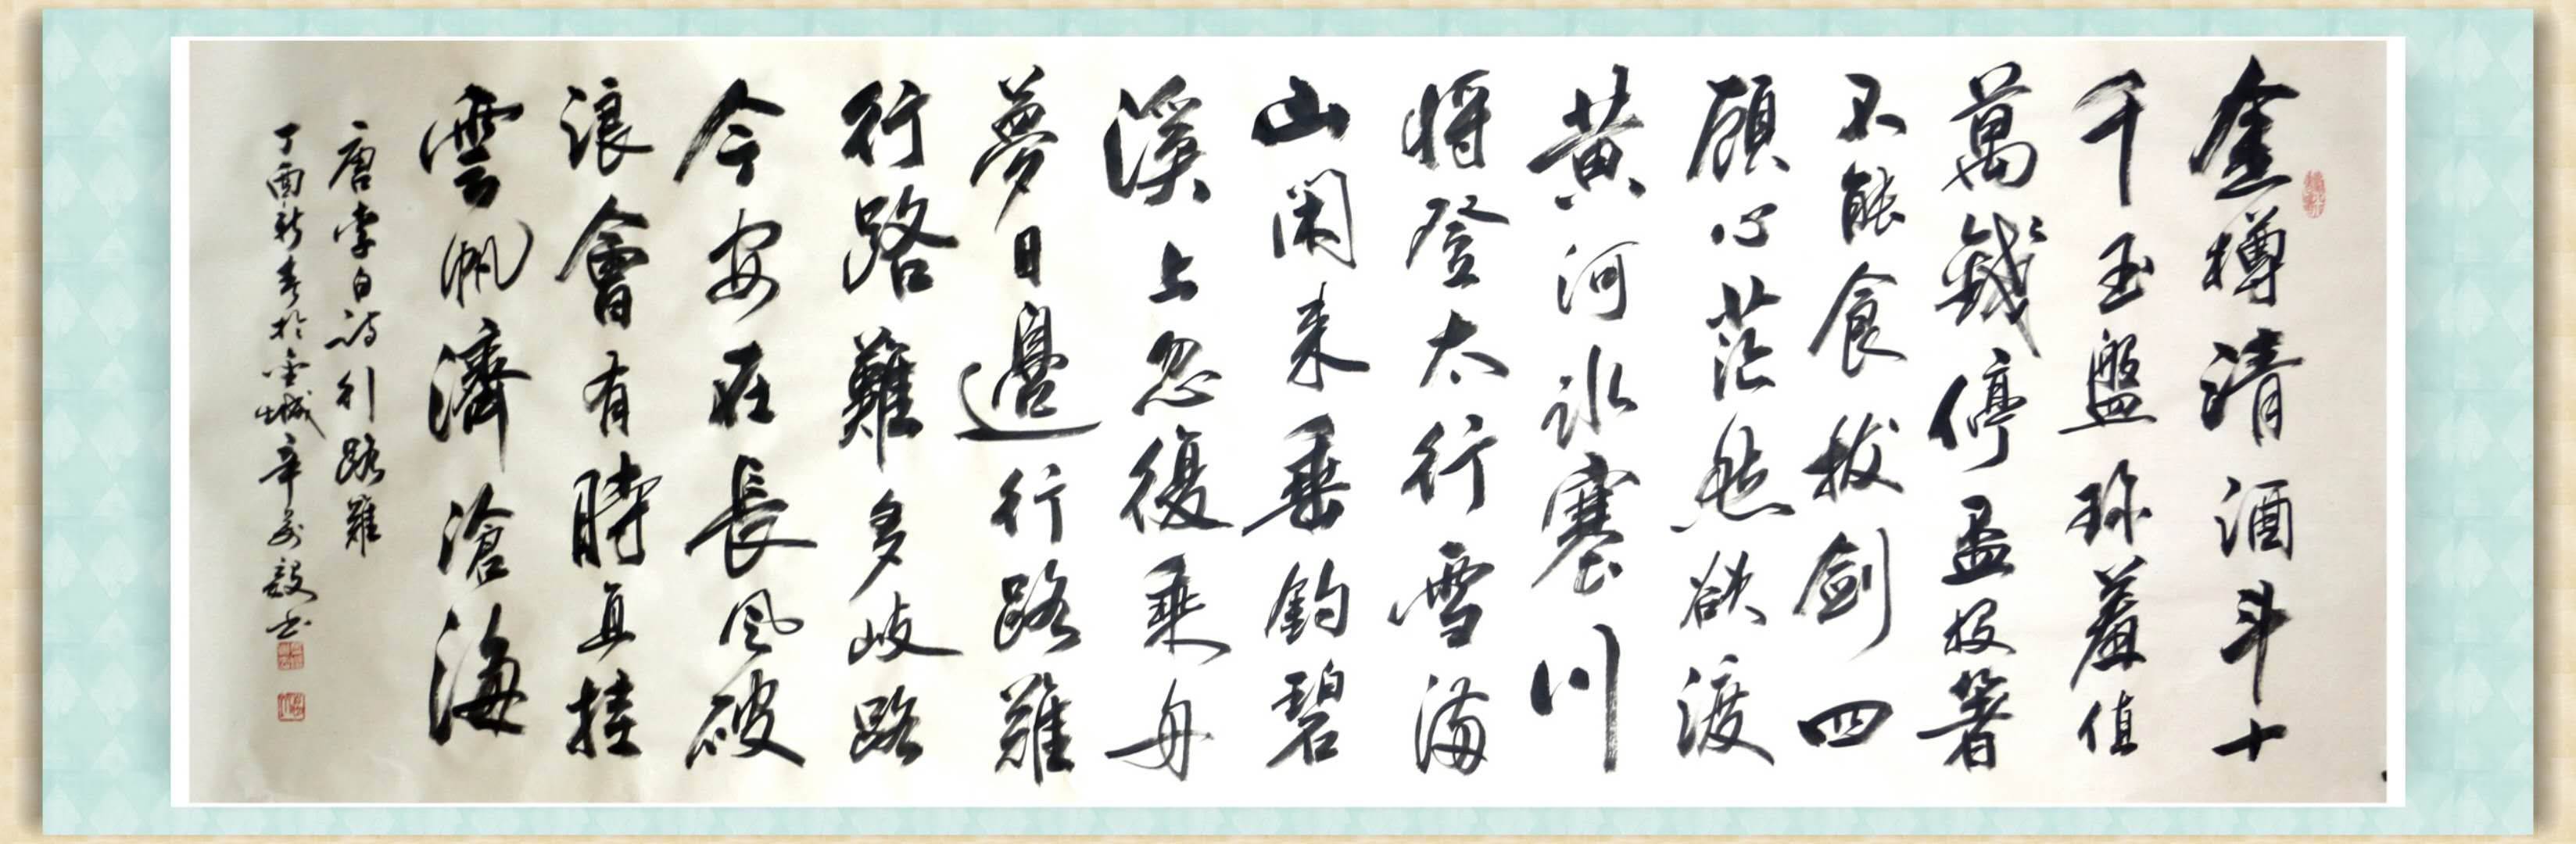 金樽清酒斗十
千玉盤珎羞值
萬錢停盃投箸
不能食拔劍四
顧心茫然欲渡
黄河冰塞川
将登太行雪滿
山閑来垂釣碧
溪上忽復乘舟
夢日邊行路難
行路難多岐路
今安在長風破
浪會有時直挂
雲帆濟滄海
唐李白詩行路難
丁酉新春於金城辛毅书